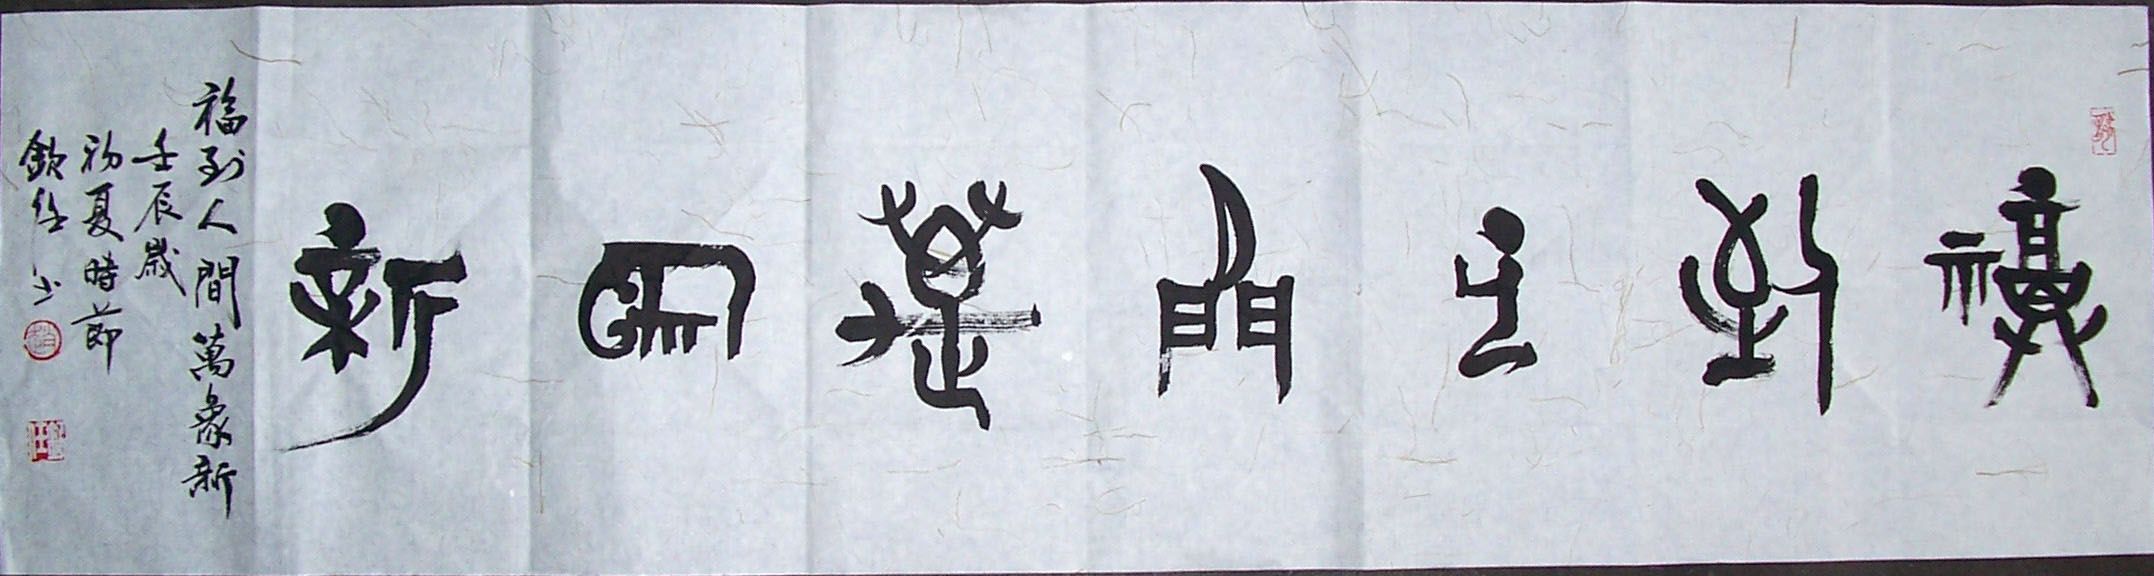 福到人間萬象新
福到人間萬象新
壬辰歲
初夏時節
欽任书